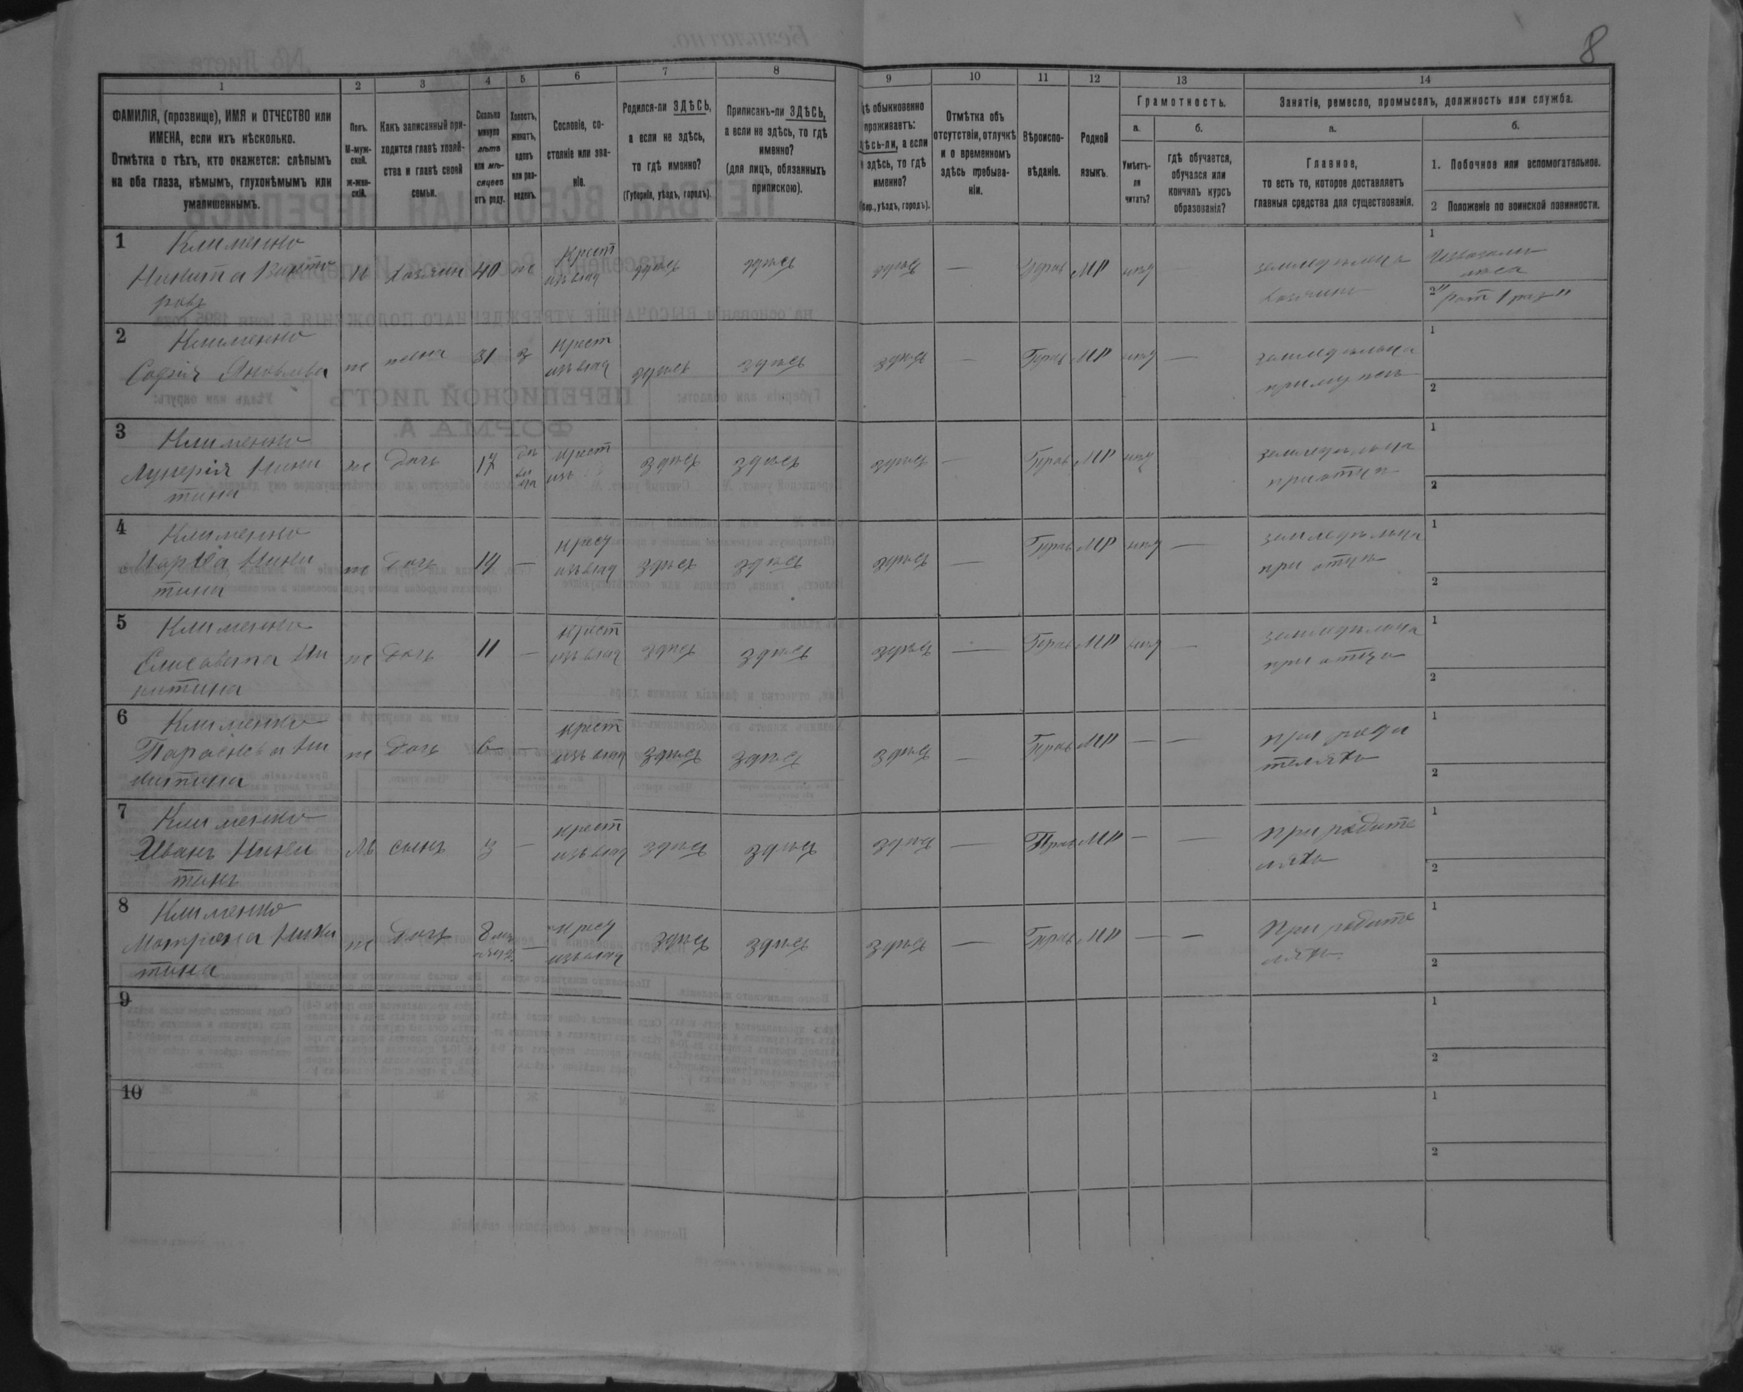 8
1
2
3
4
5
6
7
8
9
10
11
12
13
14
ФАМИЛІЯ, (прозвище), ИМЯ и ОТЧЕСТВО или
ИМЕНА, если ихъ нѣсколько.
Отмѣтка о тѣхъ, кто окажется: слѣпымъ
на оба глаза, нѣмымъ, глухонѣмымъ или
умалишеннымъ.
Полъ.
М-муж-
ской.
Ж-жен-
скій.
Какъ записанный при-
ходится главѣ хозяй-
ства и главѣ своей
семьи.
Сколько
минуло
лѣтъ
или мѣ-
сяцевъ
отъ роду.
Холостъ,
женатъ,
вдовъ
или раз-
веденъ.
Сословіе, со-
стояніе или зва-
ніе.
Родился-ли ЗДѢСЬ,
а если не здѣсь,
то гдѣ именно?
(Губернія, уѣздъ, городъ).
Приписанъ-ли ЗДѢСЬ,
а если не здѣсь, то гдѣ
именно?
(для лицъ, обязанныхъ
припискою).
обыкновенно
проживаетъ:
а если
здѣсь, то гдѣ
именно?
уѣздъ, городъ).
Отмѣтка объ
отсутствіи, отлучкѣ
и о временномъ
здѣсь пребыва-
ніи.
Вѣроиспо-
вѣданіе.
Родной
языкъ.
Грамотность.
а.
б.
Умѣетъ-
ли
читать?
гдѣ обучается,
обучался или
кончилъ курсъ
образованія?
Занятіе, ремесло, промыселъ, должность или служба.
а.
б.
Главное,
то есть то, которое доставляетъ
главныя средства для существованія.
1. Побочное или вспомогательное.
2 Положеніе по воинской повинности.
1
Клименко
Никита
М
хозяинъ
40
ж
Крест
изъ влад
здѣсь
здѣсь
здѣсь
—
Прав
МР
—
1
2
2
Клименко
Софія Яковлева
ж
жена
31
з
крест
изъ влад
здѣсь
здѣсь
здѣсь
—
Прав
МР
—
1
2
3
Клименко
Лукерія Ники
тина
ж
дочь
17
крест
изъ
здѣсь
здѣсь
здѣсь
—
Прав
МР
—
1
2
4
Клименко
Марѳа Ники
тина
ж
дочь
14
—
изъ влад
здѣсь
здѣсь
здѣсь
—
Прав
МР
—
1
2
5
Клименко
Елисавета Ни
китина
ж
дочь
11
—
крест
изъ влад
здѣсь
здѣсь
здѣсь
—
Прав
МР
—
при отцѣ
1
2
6
Клименко
Параскева Ни
китина
ж
дочь
6
—
крест
изъ влад
здѣсь
здѣсь
здѣсь
—
Прав
МР
—
—
при роди
теляхъ
1
2
7
Клименко
Иванъ Ники
тинъ
М
сынъ
3
—
крест
изъ влад
здѣсь
здѣсь
здѣсь
—
Прав
МР
—
—
при родите
ляхъ
1
2
8
Клименко
Матрена Ники
тина
ж
дочь
8
—
изъ влад
здѣсь
здѣсь
здѣсь
—
Прав
МР
—
—
При родите
ляхъ
1
2
9
1
2
10
1
2